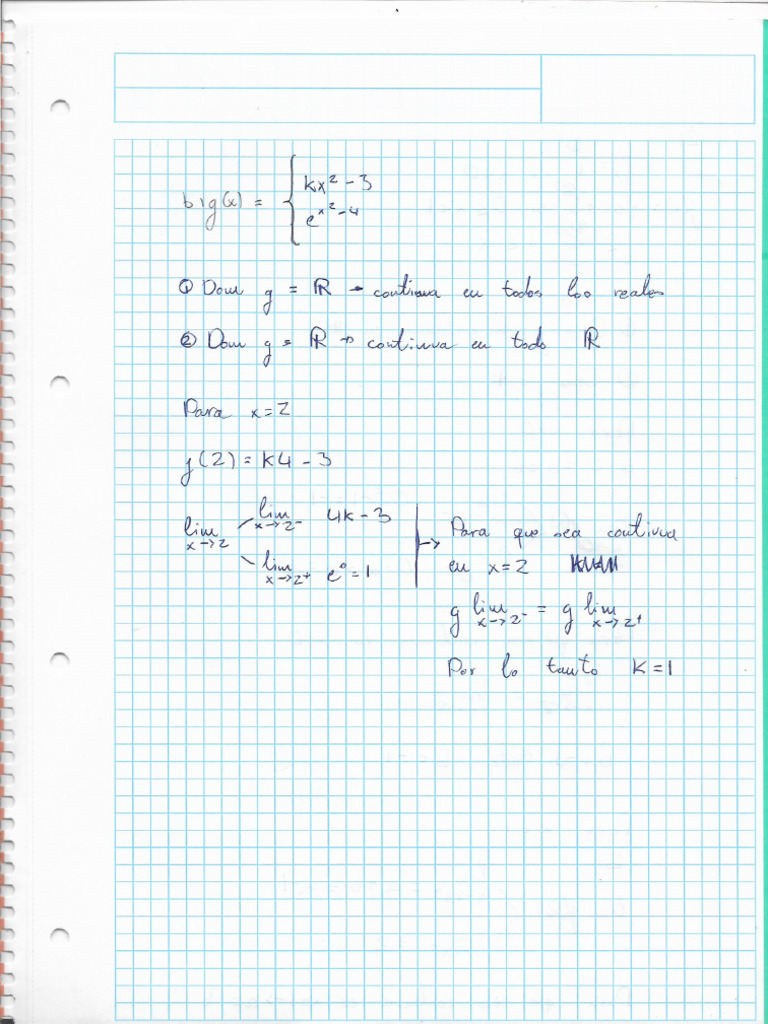 b) g(x) = { kx² - 3
e^(x²-4)
① Dom g = ℝ → continua en todos los reales
② Dom g = ℝ → continua en todo ℝ
Para x=2
g(2) = K4 - 3
lim x→2
lim x→2⁻ 4K - 3
lim x→2⁺ e⁰ = 1
Para que sea continua
en x=2
g lim x→2⁻ = g lim x→2⁺
Por lo tanto K=1